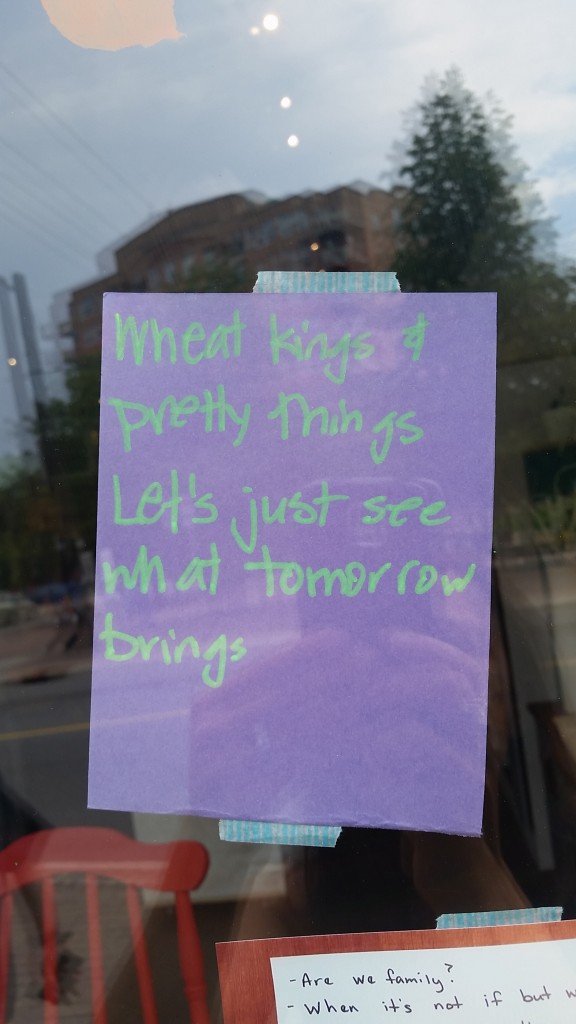 Wheat kings &
pretty things
Let's just see
what tomorrow
brings
- Are we family?
- When it's not if but